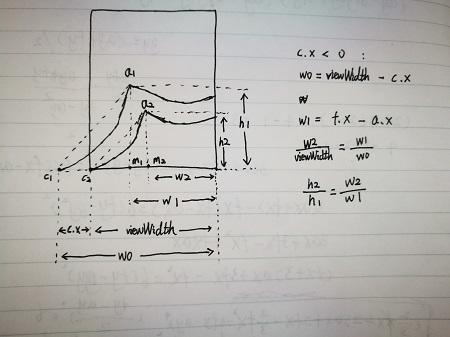 c.x < 0 :
w0 = viewWidth - c.x
w1 = f.x - a.x
w2/viewWidth = w1/w0
h2/h1 = w2/w1
a1
a2
h1
h2
c1
c2
m1
m2
w2
w1
c.x
viewWidth
w0